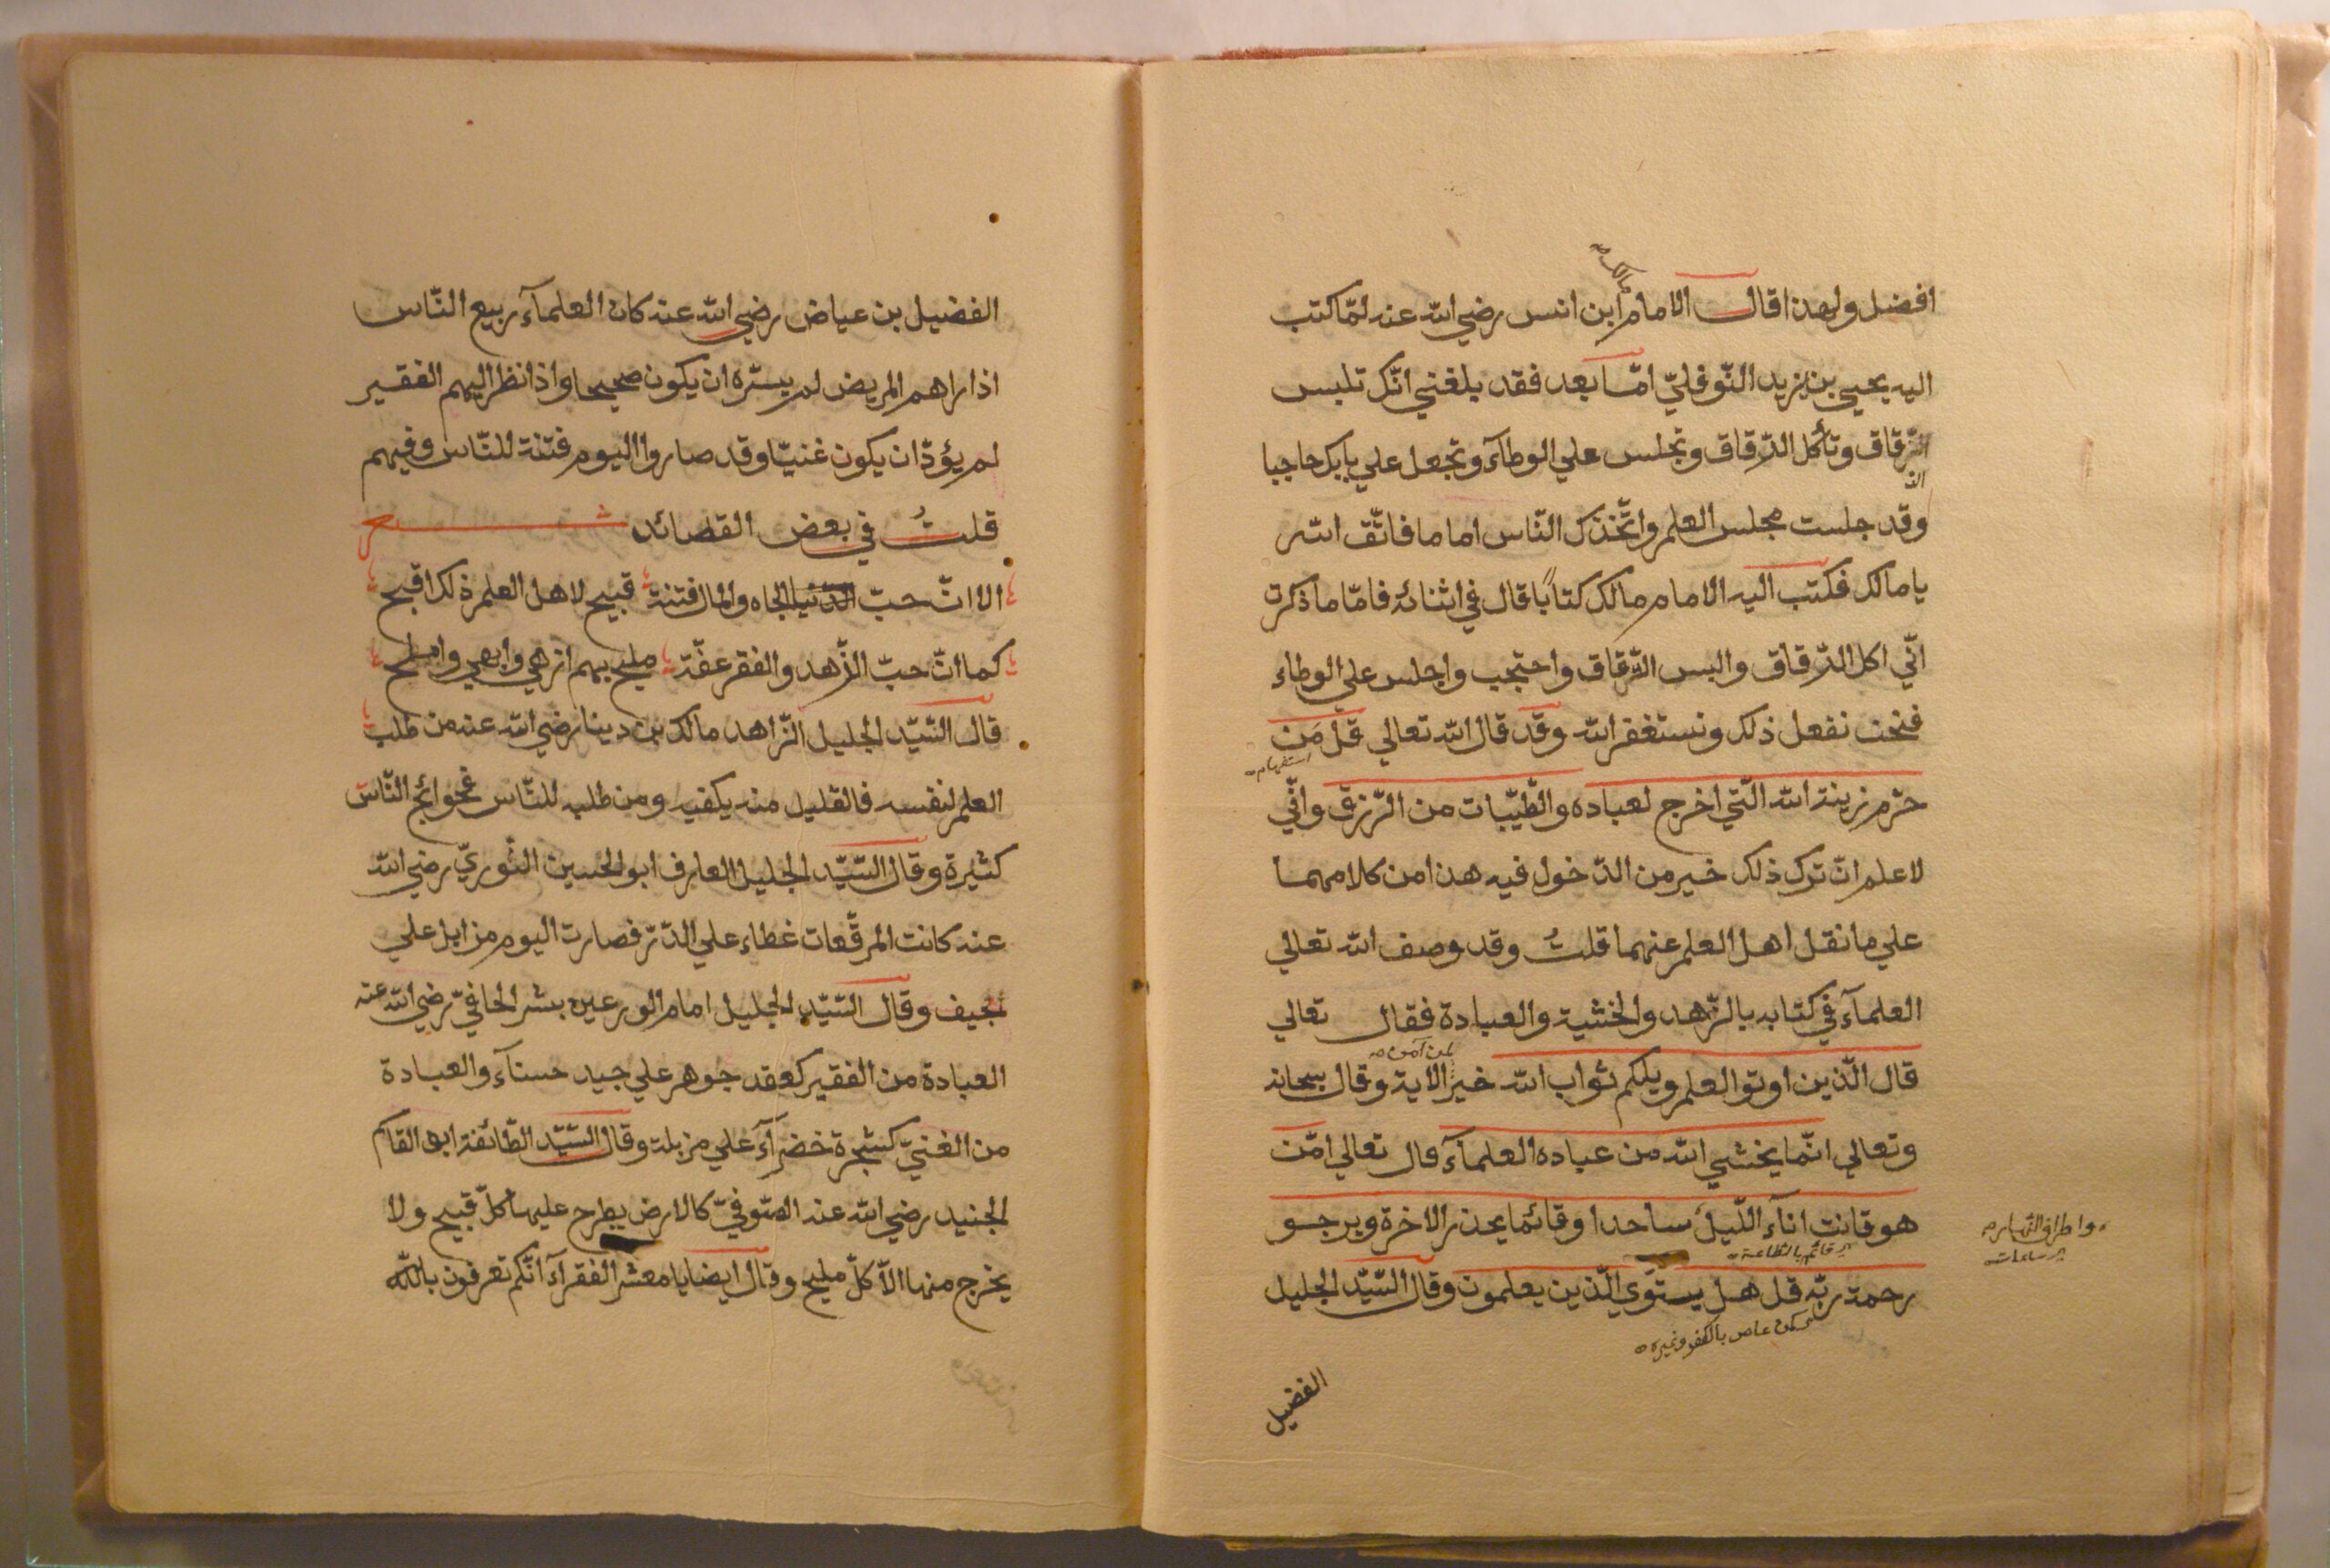 افضل ولهذا قال الامام مالك ابن انس رضي الله عنه لمّا كتب
اليه يحيي بن يزيد النّوفليّ امّا بعد فقد بلغني انّك تلبس
الرّقاق وتأكل الدّقاق وتجلس علي الوطآء وتجعل علي بابك حاجبا
وقد جلست مجلس العلم واتّخذك النّاس اماما فاتّق الله
يا مالك فكتب اليه الامام مالك كتاباً قال في اثنائه فامّا ما ذكرت
انّي اكل الدّقاق والبس الرّقاق واحتجب واجلس علي الوطاء
فنحن نفعل ذلك ونستغفر الله وقد قال الله تعالي قل مَن
استفهام
حرّم زينة الله الّتي اخرج لعباده والطّيّبات من الرّزق وانّي
لاعلم انّ ترك ذلك خير من الدّخول فيه هذا من كلامهما
علي ما نقل اهل العلم عنهما قلتُ وقد وصف الله تعالي
العلمآء في كتابه بالزّهد والخشية والعبادة فقال تعالي
قال الّذين اوتوا العلم ويلكم ثواب الله خير لمن آمن الاية وقال سبحانه
وتعالي انّما يخشي الله من عباده العلمآء قال تعالي امّن
هو قانت انآء اللّيل ساجدا وقائما يحذر الاخرة ويرجو
واطراف النّهار
ساعات
قائم بالطّاعة
رحمة ربّه قل هل يستوي الّذين يعلمون وقال السّيّد الجليل
كمن عاص بالكفر وغيره
الفضيل
الفضيل بن عياض رضي الله عنه كان العلمآء ربيع النّاس
اذا راهم المريض لم يسرّه ان يكون صحيحا واذا نظر اليهم الفقير
لم يؤدّ ان يكون غنيّا وقد صاروا اليوم فتنة للنّاس وفيهم
قلتُ في بعض القصائد شعر
الا انّ حبّ الجاه والمال فتنة قبيح لاهل العلم ذلك اقبح
كما انّ حبّ الزّهد والفقر عفّة مليح بهم ازهي وابهي واملح
قال السّيّد الجليل الزّاهد مالك بن دينار رضي الله عنه من طلب
العلم لنفسه فالقليل منه يكفيه ومن طلبه للنّاس فحوائج النّاس
كثيرة وقال السّيّد الجليل العارف ابو الحسين النّوريّ رضي الله
عنه كانت المرقّعات غطاء علي الدّرّ فصارت اليوم مزابل علي
جيف وقال السّيّد الجليل امام الورعين بشر الحافيّ رضي الله عنه
العبادة من الفقير كعقد جوهر علي جيد حسنآء والعبادة
من الغنيّ كشجرة خضرآء علي مزبلة وقال السّيّد الطّائفة ابو القاسم
الجنيد رضي الله عنه الصّوفيّ كالارض يطرح عليها كلّ قبيح ولا
يخرج منها الاّ كلّ مليح وقال ايضا يا معشر الفقرآء انّكم تعرفون باللّه